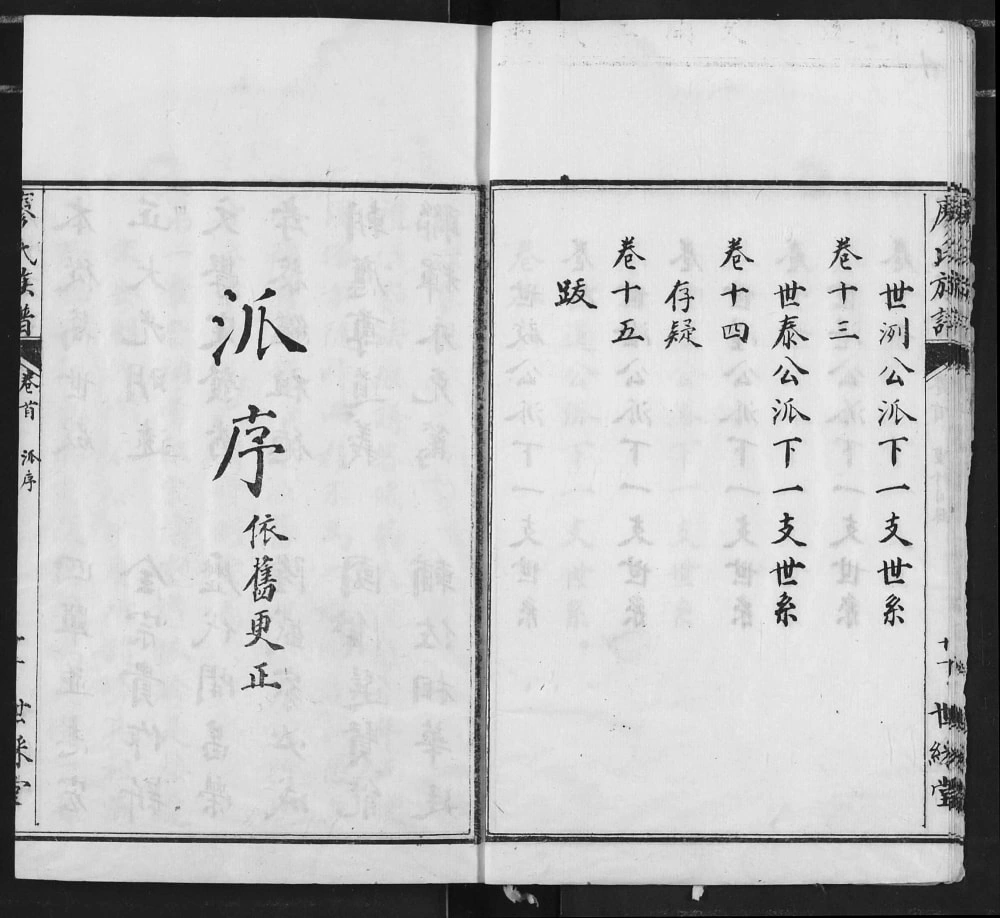 世洌公派下一支世系
卷十三
世泰公派下一支世系
卷十四
存疑
卷十五
跋
派序 依舊更正
廖氏族譜
卷首
派序
世綵堂